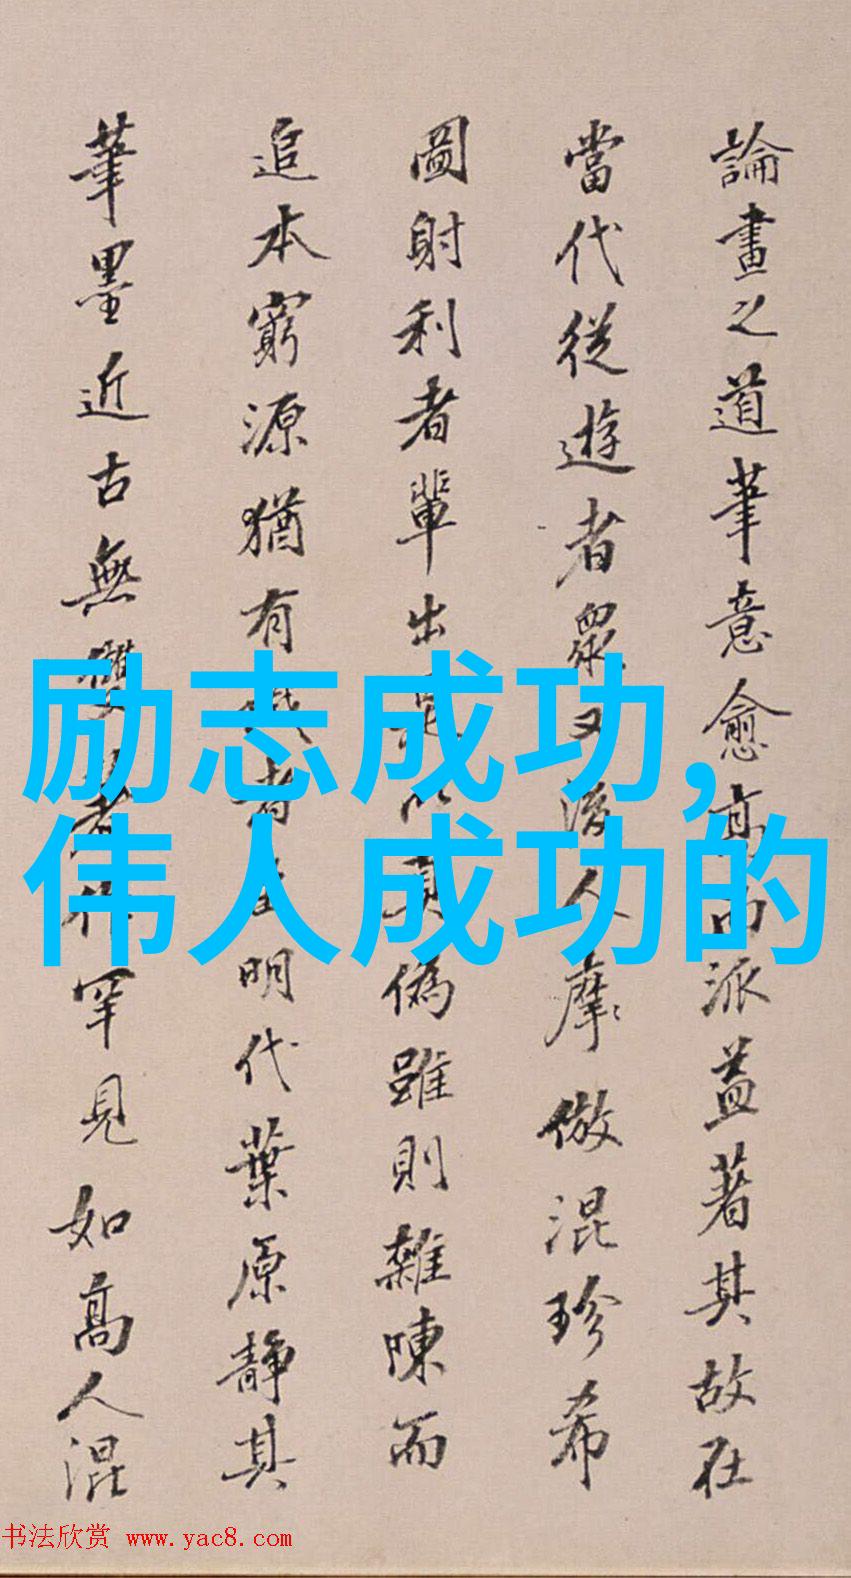 論畫之道筆意愈高而派益著其故在
當代從遊者眾又後人摩倣混珍希
圖射利者輩出是以真偽雖則雜陳而
追本窮源猶有識者在明代葉原靜其
筆墨近古無雙著作罕見如高人混
励志成功,
伟人成功的
书法欣赏 www.yac8.com